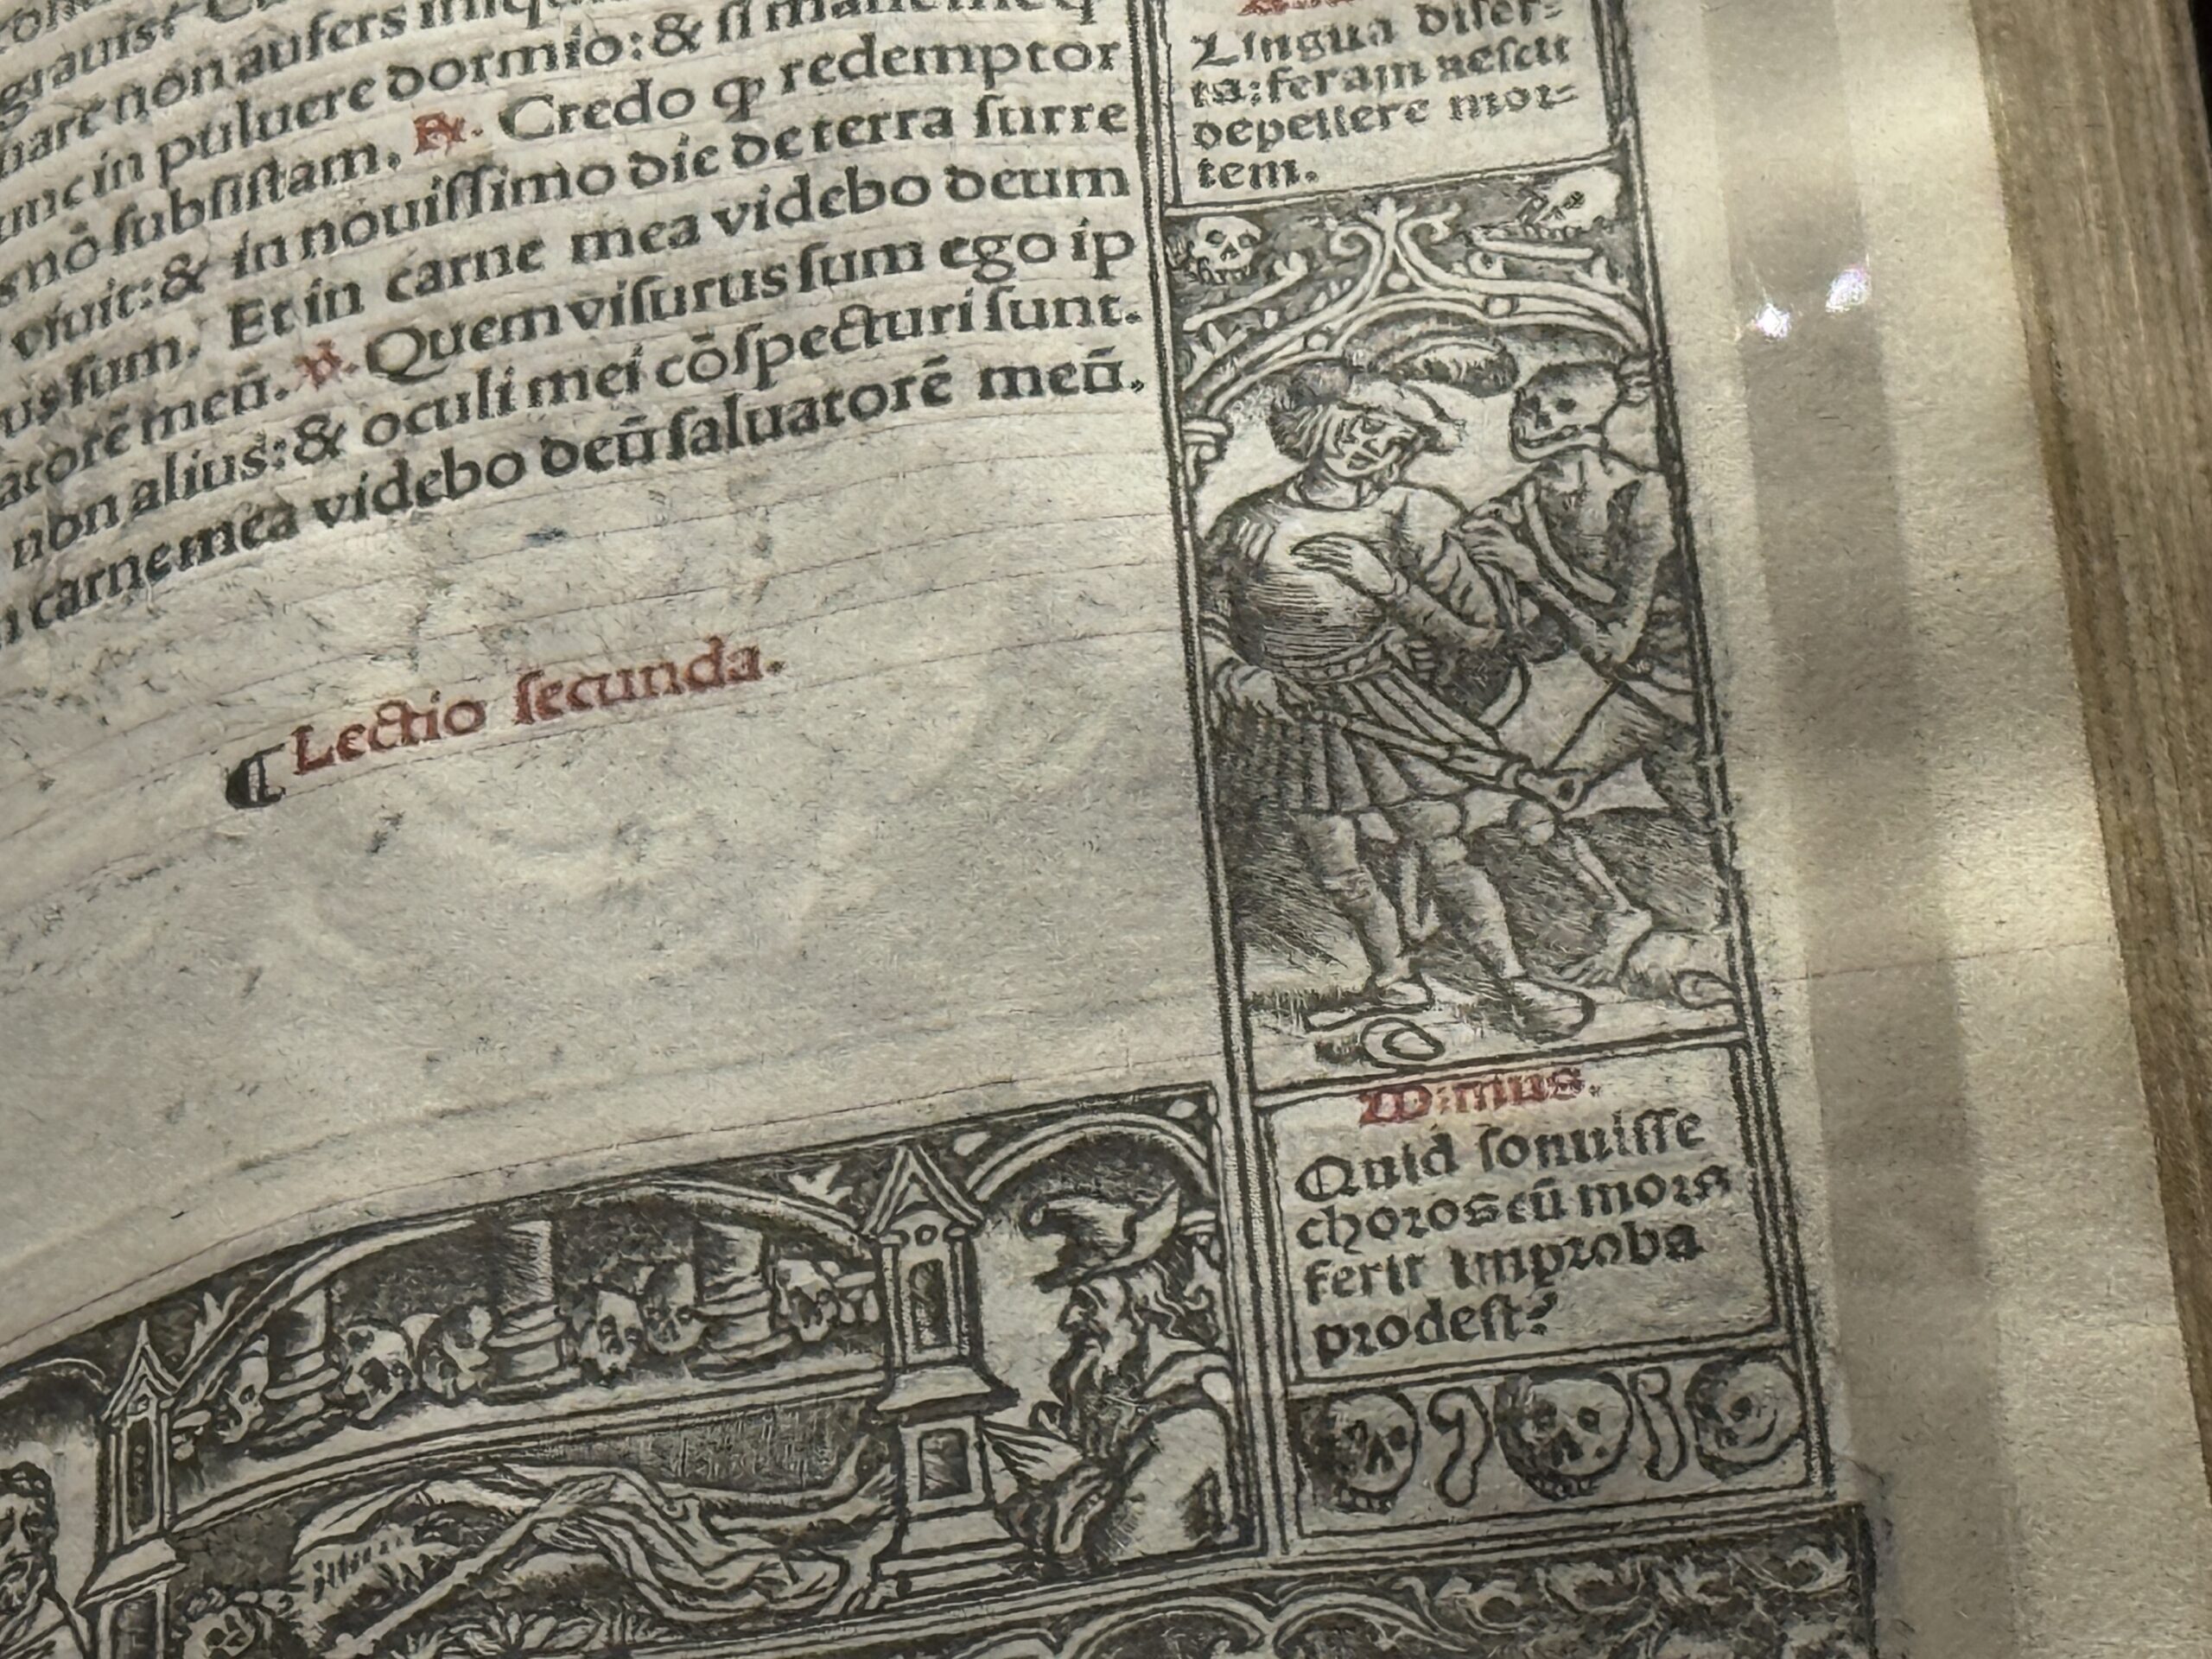 grauist
nare non aufers
nunc in puluere dormio: & si mane me q̄
nō subsistam. ℟. Credo ꝙ redemptor
viuit: & in nouissimo die de terra surre
us sum. Et in carne mea videbo deum
atorē meū. ℣. Quem visurus sum ego ip
non alius: & oculi mei cōspecturi sunt.
carne mea videbo deū saluatorē meū.
¶ Lectio secunda.
Lingua diser-
ta: feram nescit
depellere mor-
tem.
Mimus.
Quid sonuisse
choros cū mors
ferit improba
prodest?